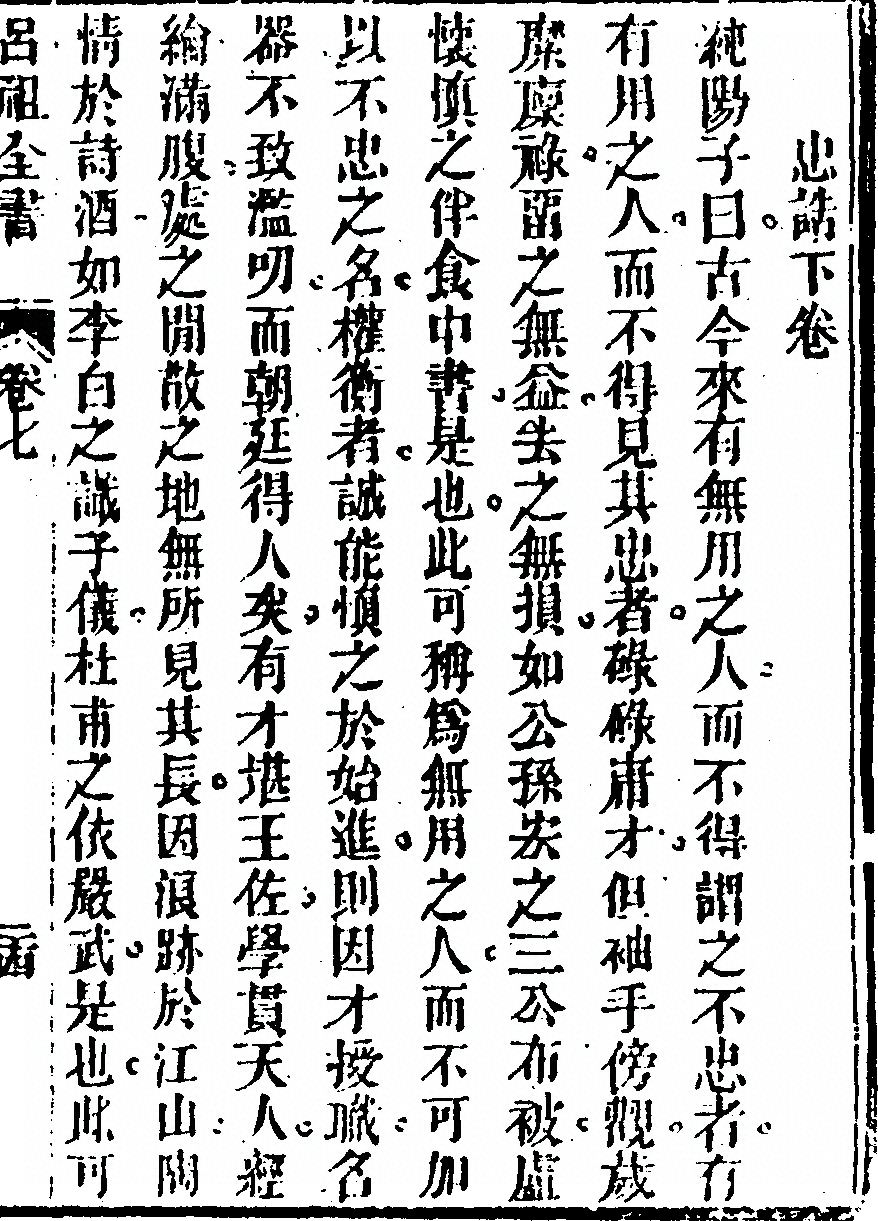 忠誥下卷
純陽子曰古今來有無用之人而不得謂之不忠者有
有用之人而不得見其忠者碌碌庸才但袖手傍觀歲
糜廩祿畱之無益去之無損如公孫宏之三公布被盧
懷慎之伴食中書是也此可稱爲無用之人而不可加
以不忠之名權衡者誠能慎之於始進則因才授職名
器不致濫叨而朝廷得人矣有才堪王佐學貫天人經
綸滿腹處之閒散之地無所見其長因浪跡於江山陶
情於詩酒如李白之識子儀杜甫之依嚴武是也此可
呂祖全書 卷七